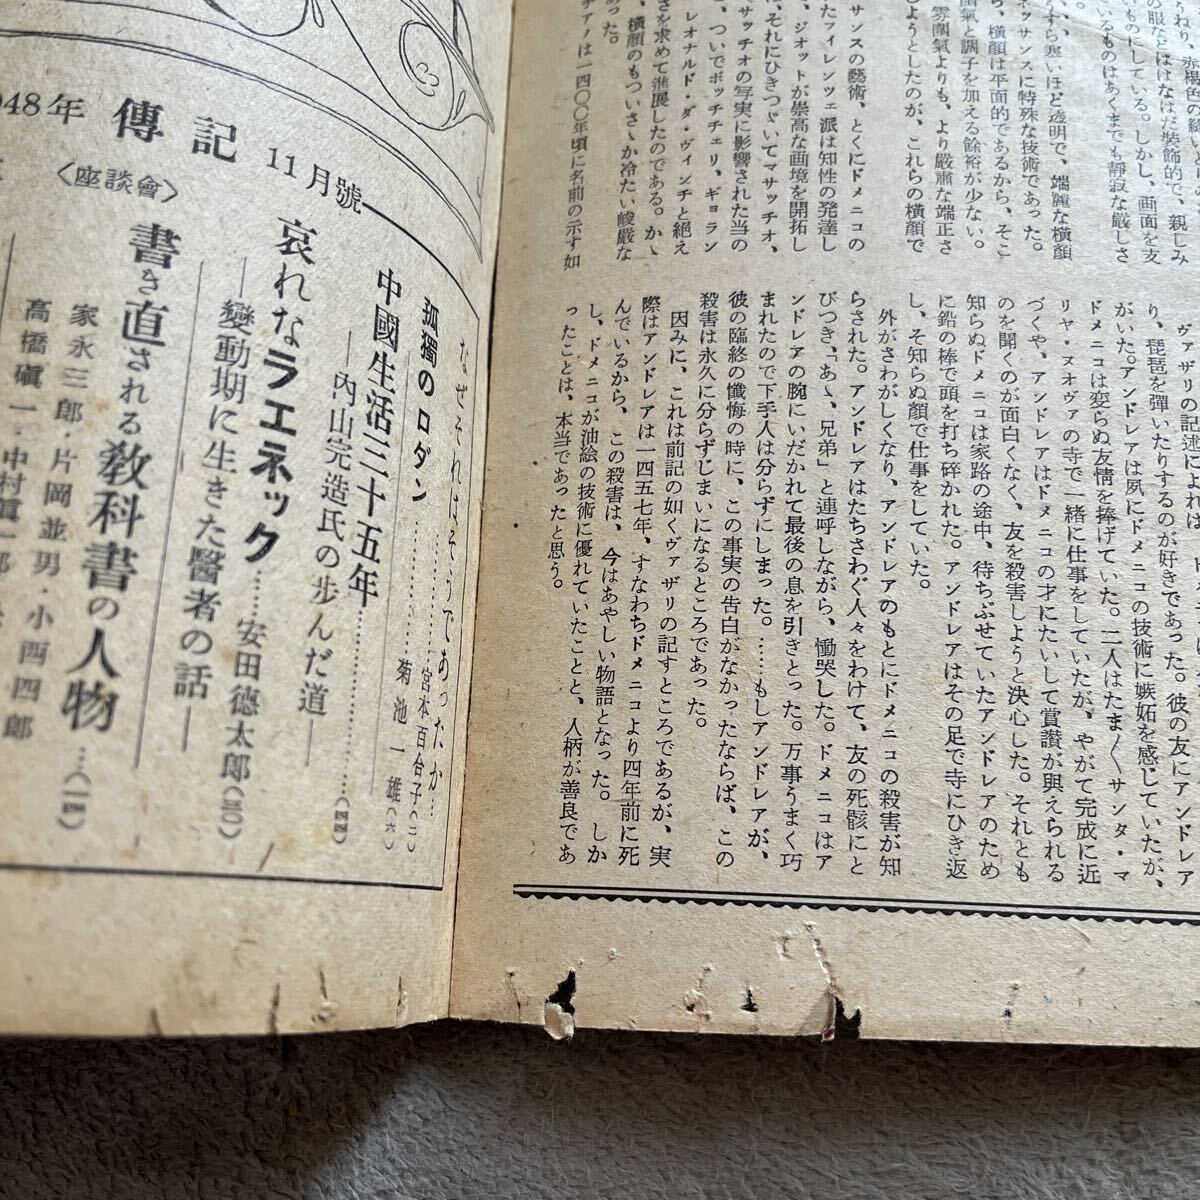 うねり、赤褐色の縫い
の服などはなはだ装飾的で、親しみ
いものにしている。しかし、画面を支
ているものはあくまでも静寂な厳しさ
る。
うすら寒いほど透明で、端麗な横顔
ネッサンスに特殊な技術であった。
ら、横顔は平面的であるから、そこ
囲氣と調子を加える餘裕が少ない。
雰囲氣よりも、より嚴肅な端正さ
しようとしたのが、これらの横顔で
サンスの藝術、とくにドメニコの
たフィレンツェ派は知性の発達し
、ジオットが崇高な画境を開拓し
は、それにひきつゞいてマサッチオ、
サッチオの写実に影響された当の
、ついでボッチチェリ、ギョラン
レオナルド・ダ・ヴィンチと絶え
さを求めて進展したのである。かゝ
、横顔のもついさゝか冷たい峻厳な
あった。
チアノは一四〇〇年頃に名前の示す如
ヴァザリの記述によれば、ド
り、琵琶を弾いたりするのが好きであった。彼の友にアンドレア
がいた。アンドレアは夙にドメニコの技術に嫉妬を感じていたが、
ドメニコは変らぬ友情を捧げていた。二人はたまくサンタ・マ
リヤ・ヌオヴァの寺で一緒に仕事をしていたが、やがて完成に近
づくや、アンドレアはドメニコの才にたいして賞讃が興えられる
のを聞くのが面白くなく、友を殺害しようと決心した。それとも
知らぬドメニコは家路の途中、待ちぶせていたアンドレアのため
に鉛の棒で頭を打ち碎かれた。アンドレアはその足で寺にひき返
し、そ知らぬ顔で仕事をしていた。
外がさわがしくなり、アンドレアのもとにドメニコの殺害が知
らされた。アンドレアはたちさわぐ人々をわけて、友の死骸にと
びつき、「あゝ、兄弟」と連呼しながら、慟哭した。ドメニコはア
ンドレアの腕にいだかれて最後の息を引きとった。万事うまく巧
まれたので下手人は分らずにしまった。……もしアンドレアが、
彼の臨終の懺悔の時に、この事実の告白がなかったならば、この
殺害は永久に分らずじまいになるところであった。
因みに、これは前記の如くヴァザリの記すところであるが、実
際はアンドレアは一四五七年、すなわちドメニコより四年前に死
んでいるから、この殺害は、今はあやしい物語となった。しか
し、ドメニコが油絵の技術に優れていたことと、人柄が善良であ
ったことは、本当であったと思う。
948年 傳記 11月號
なぜそれはそうであったか…宮本百合子(二)
孤獨のロダン……菊池一雄(六)
中國生活三十五年……(四四)
―內山完造氏の歩んだ道―
哀れなラエネック……安田德太郎(三〇)
―變動期に生きた醫者の話―
〈座談會〉
書き直される敎科書の人物…(一四)
家永三郎・片岡並男・小西四郎
高橋磌一・中村